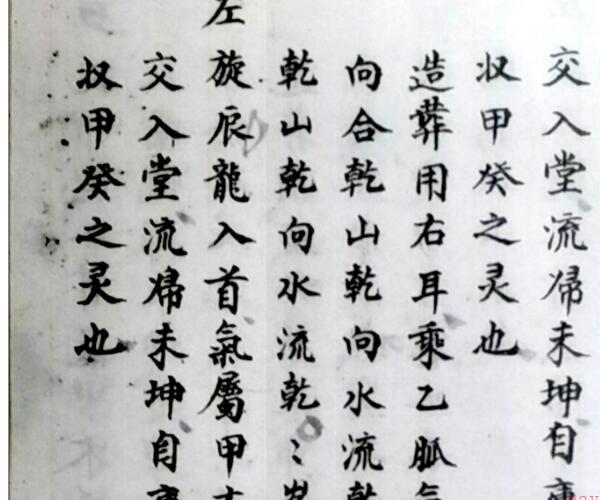 交入堂流归未坤自
収甲癸之灵也
造葬用右耳乘乙脈气
向合乾山乾向水流乾
乾山乾向水流乾〻
左旋辰龍入首氣屬甲
交入堂流归未坤自
収甲癸之灵也